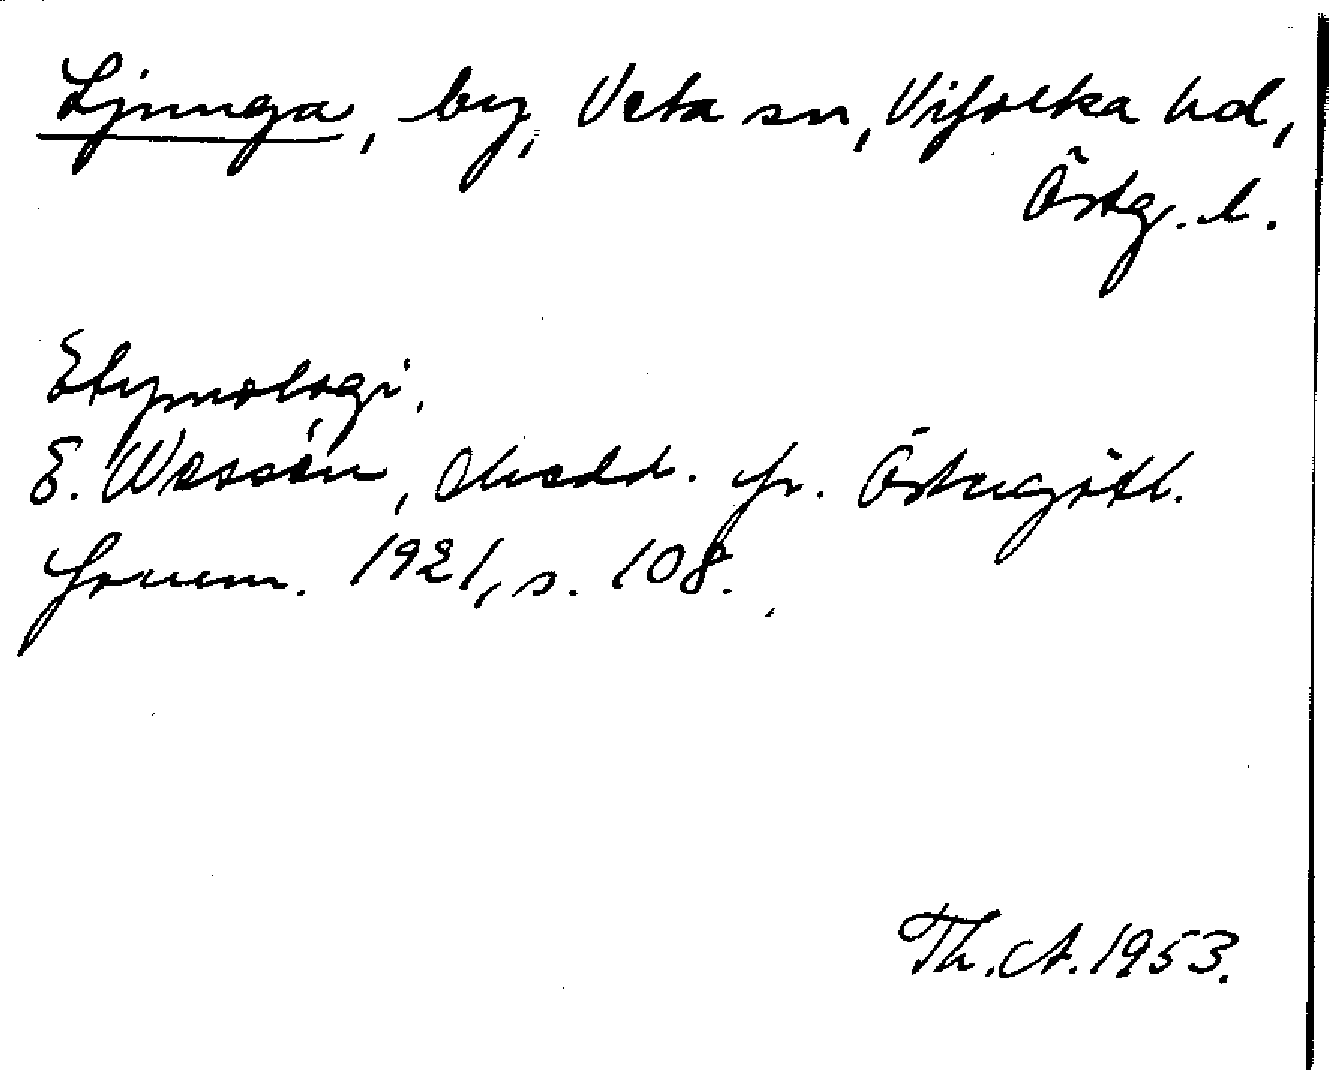 Ljunga, by, Veta sn, Vifolka hd,
Östg. l.
Etymologi.
E. Wessén, Medd. fr. Östergötl.
fornm. 1921, s. 108.
Th. A. 1953.